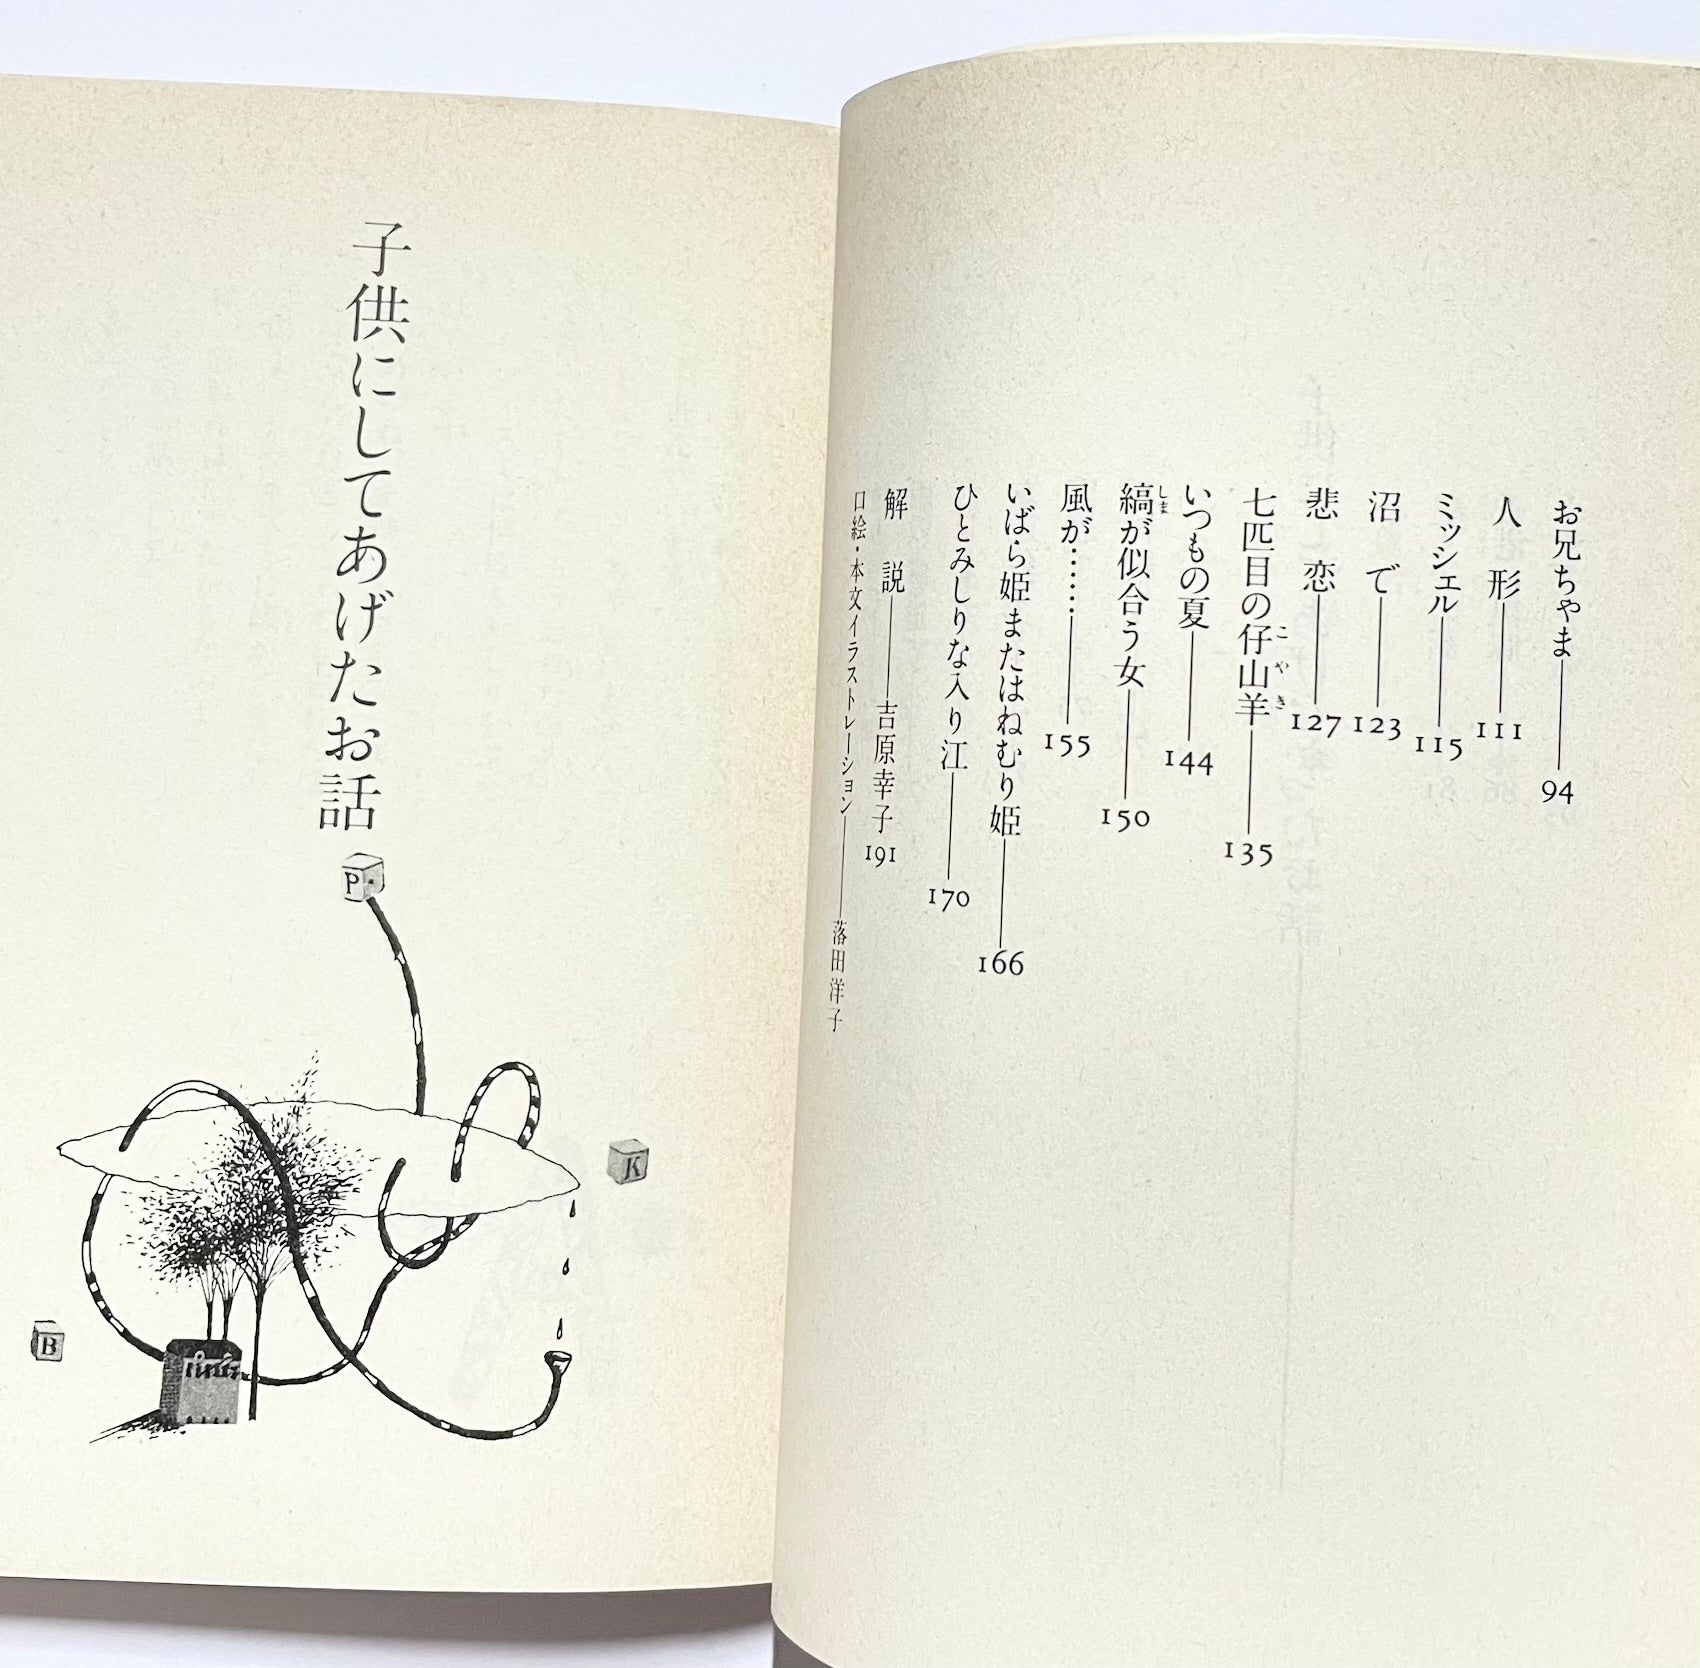 お兄ちゃま——94
人形——111
ミッシェル——115
沼で——123
悲恋——127
七匹目の仔山羊——135
こやぎ
いつもの夏——144
縞が似合う女——150
しま
風が……——155
いばら姫またはねむり姫——166
ひとみしりな入り江——170
解説——吉原幸子 191
口絵・本文イラストレーション——落田洋子
子供にしてあげたお話
P
K
B